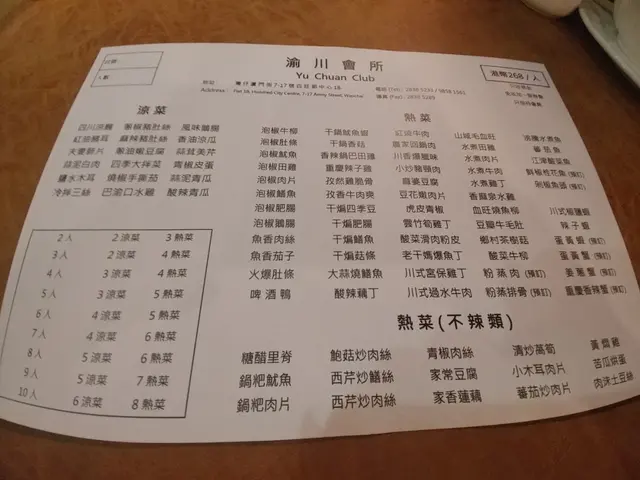 渝川會所
Yu Chuan Club
港幣268/人
涼菜
熱菜
四川涼麵 葱椒豬肚絲 風味鵝腸
紅油腰耳 麻辣豬肚絲 香油涼瓜
夫妻肺片 葱油嫩豆腐 蒜茸美芹
蒜泥白肉 四季大拌菜 青椒皮蛋
鹽水木耳 燒椒手撕茄 蒜泥青瓜
冷拌三絲 巴渝口水雞 酸辣青瓜
泡椒牛柳 干鍋魷魚蝦 紅油牛肉 山城毛血旺 沸騰水煮魚
泡椒肚條 干鍋香菇 農家回鍋肉 水煮田雞
泡椒魷魚 香辣鍋巴田雞 川香爆豬味 水煮肉片 江津酸菜魚
泡椒田雞 重慶辣子雞 小炒豬頸肉 水煮牛肉 鮮椒桂花魚(預訂)
泡椒肉片 孜然雞脆骨 麻婆豆腐 水煮雞丁 剁椒魚頭(預訂)
泡椒鱔魚 孜香牛肉爽 豆花嫩肉片 香麻魚水雞
泡椒肥腸 干煸四季豆 虎皮青椒 血旺燒魚柳 川式椒鹽蝦
泡椒鵝腸 干煸肥腸 雲竹筍雞丁 豆瓣牛毛肚 辣子蝦
魚香肉絲 干煸鱔魚 酸菜滑肉粉皮 鄉村茶樹菇 蛋黃蝦(預訂)
魚香茄子 干煸菇條 老干媽爆魚丁 酸菜牛柳 蛋黃蟹(預訂)
火爆肚條 大蒜燒鱔魚 川式宮保雞丁 粉蒸肉(預訂) 姜葱蟹(預訂)
啤酒鴨 酸辣藕丁 川式過水牛肉 粉蒸排骨(預訂) 重慶香辣蟹(預訂)
2人 2涼菜 3熱菜
3人 2涼菜 4熱菜
4人 3涼菜 4熱菜
5人 3涼菜 5熱菜
6人 4涼菜 5熱菜
7人 4涼菜 6熱菜
8人 5涼菜 6熱菜
9人 5涼菜 7熱菜
10人 6涼菜 8熱菜
熱菜(不辣類)
糖醋里脊 鮑菇炒肉絲 青椒肉絲 清炒萵筍 黃燜雞
鍋粑魷魚 西芹炒鱔絲 家常豆腐 小木耳肉片 苦瓜烘蛋
鍋粑肉片 西芹炒肉絲 家香蓮藕 蕃茄炒肉片 肉沫土豆絲